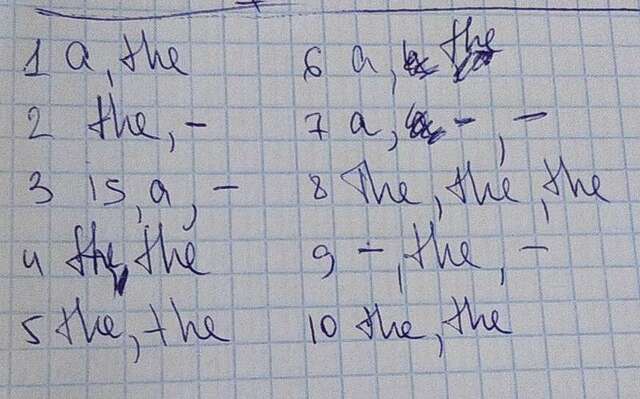 1 a, the
2 the, -
3 is, a, -
4 the, the
5 the, the
6 a, the
7 a, -, -
8 The, the, the
9 -, the, -
10 the, the